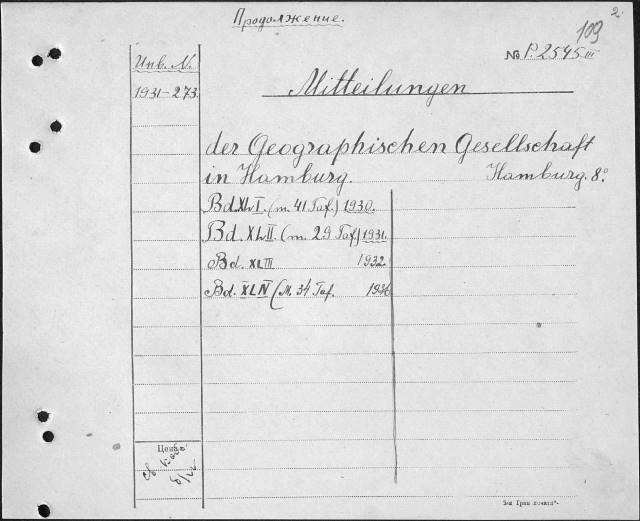 Продолжение.
2.
103
№ P. 2545 III
Инв. N.
1931-273.
Mitteilungen
der Geographischen Gesellschaft
in Hamburg. Hamburg. 8°
Bd. XLI. (m. 41 Taf.) 1930.
Bd. XLII. (m. 29 Taf.) 1931.
Bd. XLIII 1932
Bd. XLIV (M. 34 Taf. 1936
Цена